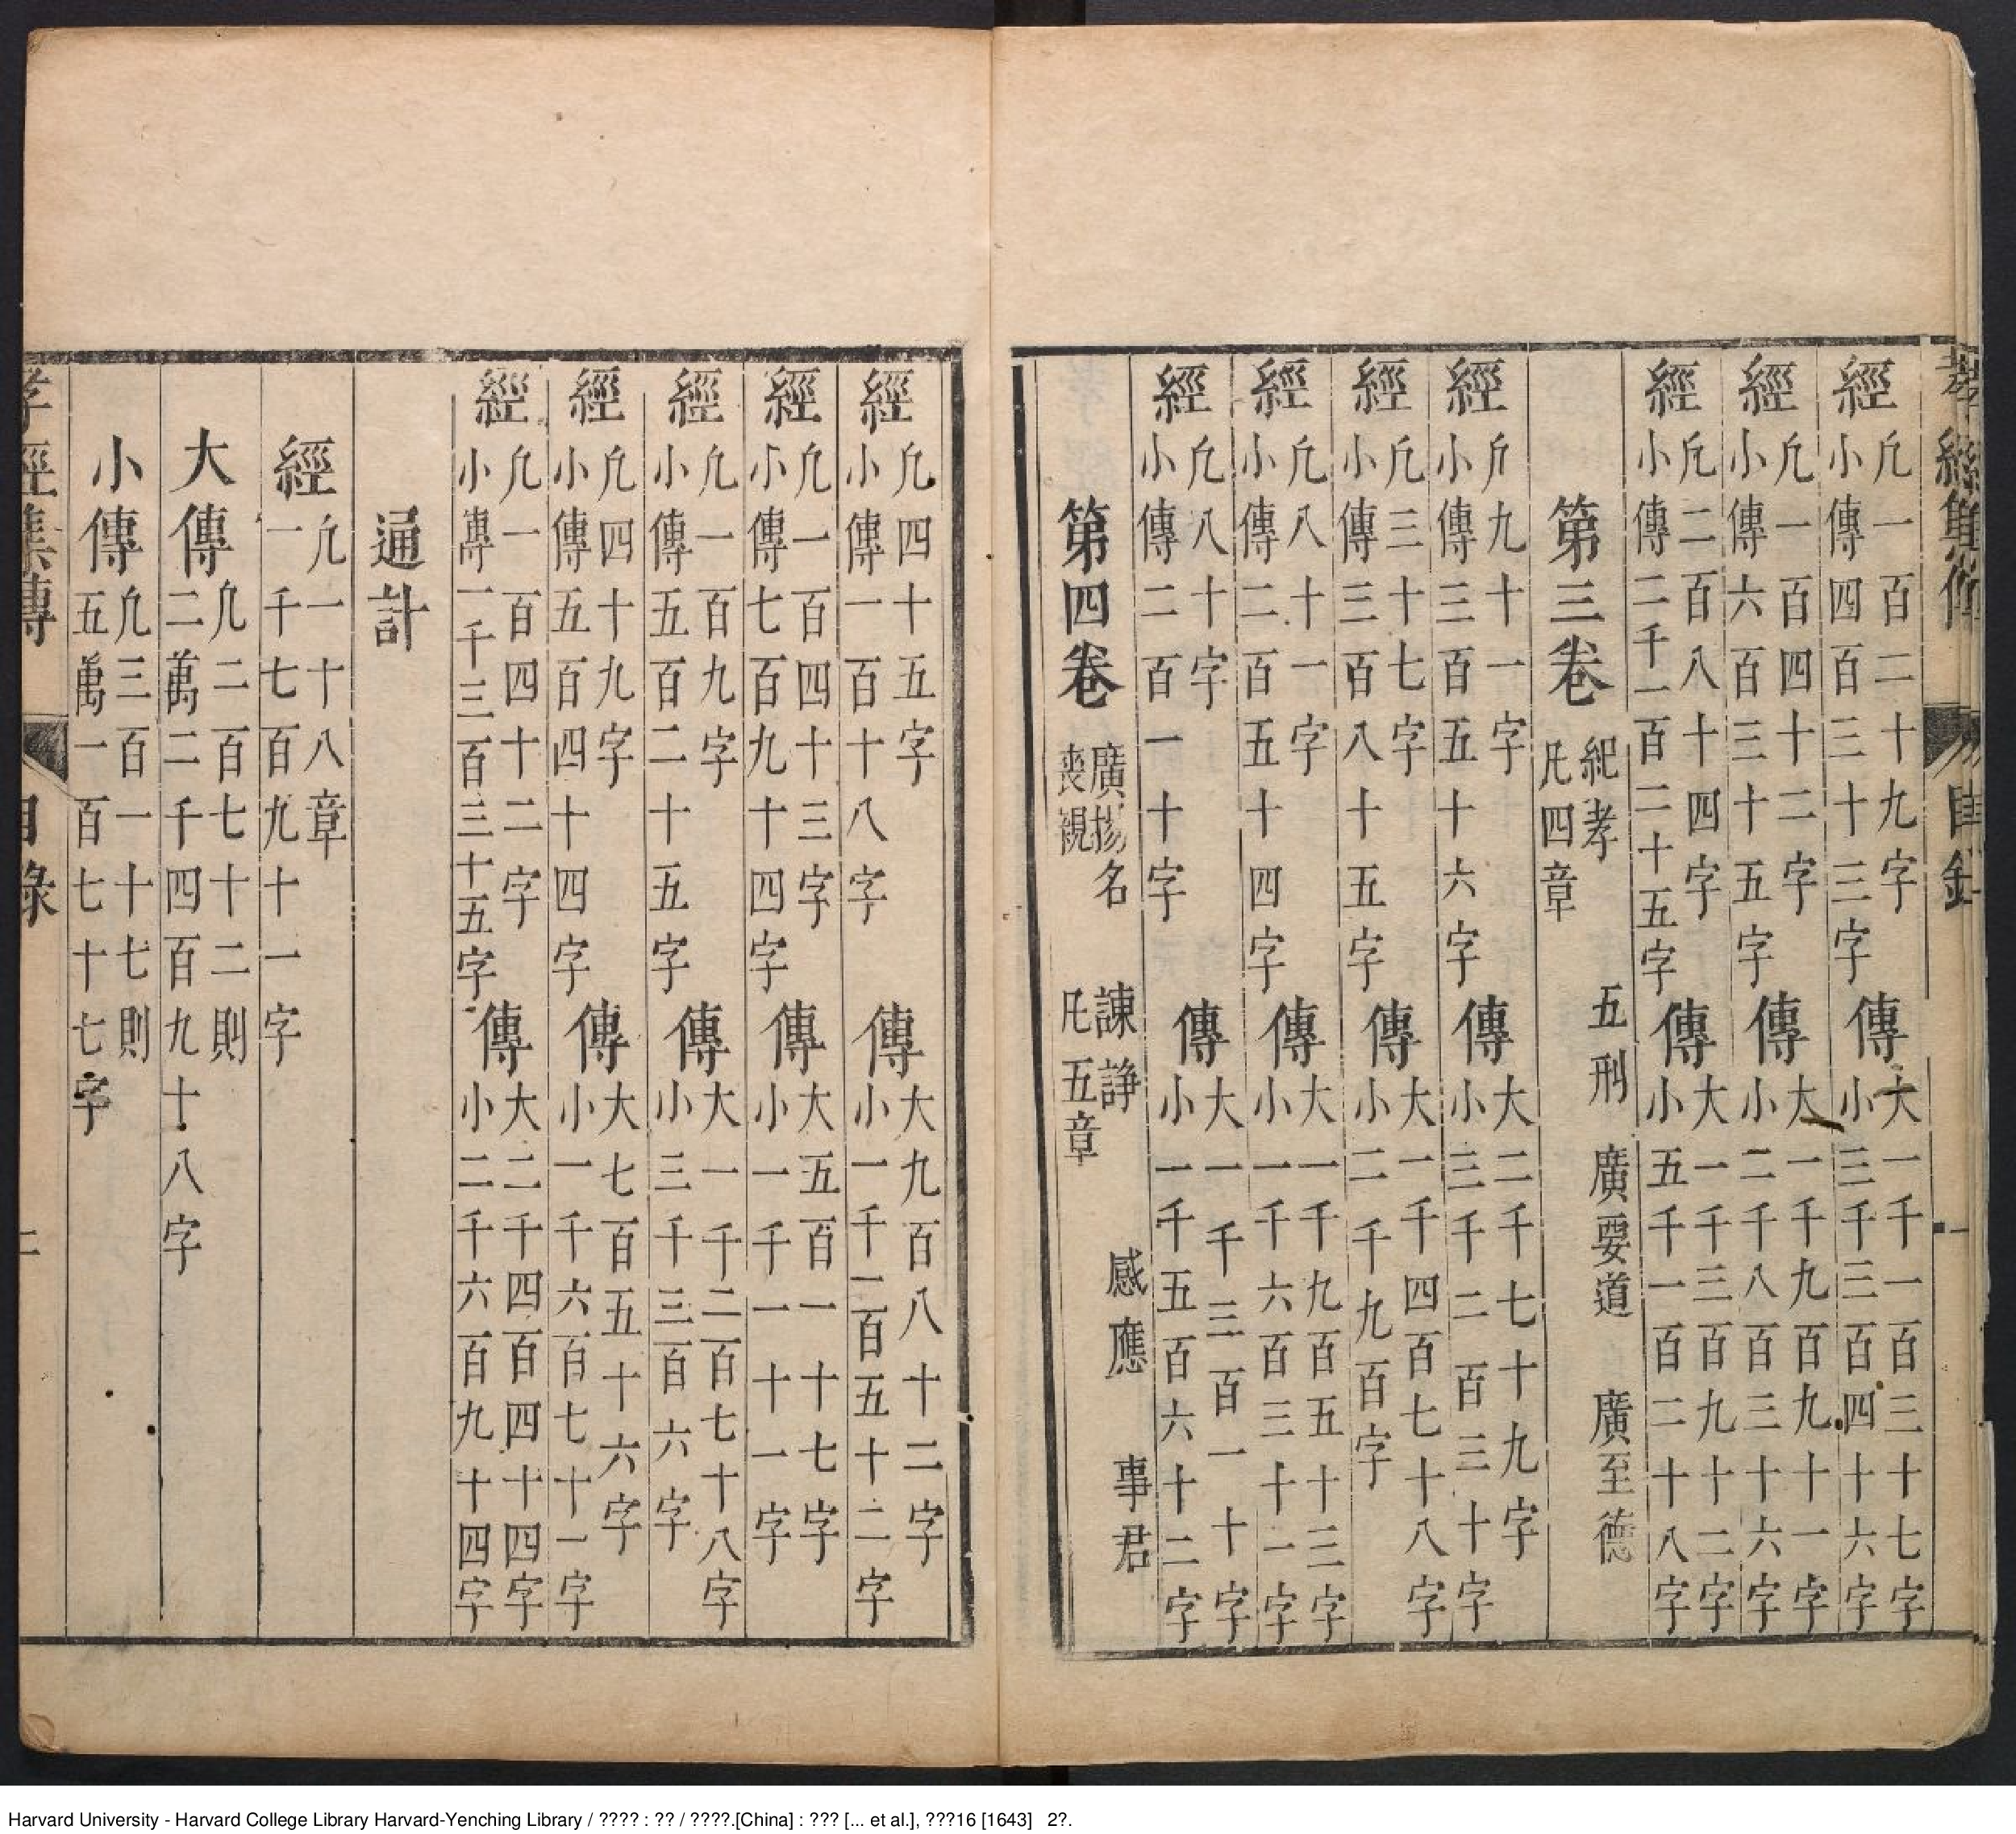 孝經集傳 目錄 一
經 凢一百二十九字 小傳四百三十三字 傳 大一千一百三十七字 小三千三百四十六字
經 凢一百四十二字 小傳六百三十五字 傳 大一千九百九十一字 小二千八百三十六字
經 凢二百八十四字 小傳二千一百二十五字 傳 大一千三百九十二字 小五千一百二十八字
第三卷 紀孝 五刑 廣要道 廣至德 凡四章
經 凢九十一字 小傳三百五十六字 傳 大二千七十九字 小三千二百三十字
經 凢三十七字 小傳三百八十五字 傳 大一千四百七十八字 小二千九百字
經 凢八十一字 小傳二百五十四字 傳 大一千九百五十三字 小一千六百三十一字
經 凢八十字 小傳二百一十字 傳 大一千三百一十字 小一千五百六十二字
第四卷 廣揚名 諫諍 感應 事君 喪親 凡五章
經 凢四十五字 小傳一百十八字 傳 大九百八十二字 小一千二百五十二字
經 凢一百四十三字 小傳七百九十四字 傳 大五百一十七字 小一千一十一字
經 凢一百九字 小傳五百二十五字 傳 大一千二百七十八字 小三千三百六字
經 凢四十九字 小傳五百四十四字 傳 大七百五十六字 小一千六百七十一字
經 凢一百四十二字 小傳一千三百三十五字 傳 大二千四百四十四字 小二千六百九十四字
通計
經 凢一十八章 一千七百九十一字
大傳 凢二百七十二則 二萬二千四百九十八字
小傳 凢三百一十七則 五萬一百七十七字
孝經集傳 目錄 二
Harvard University - Harvard College Library Harvard-Yenching Library / ???? : ?? / ????.[China] : ??? [... et al.], ???16 [1643] 2?.